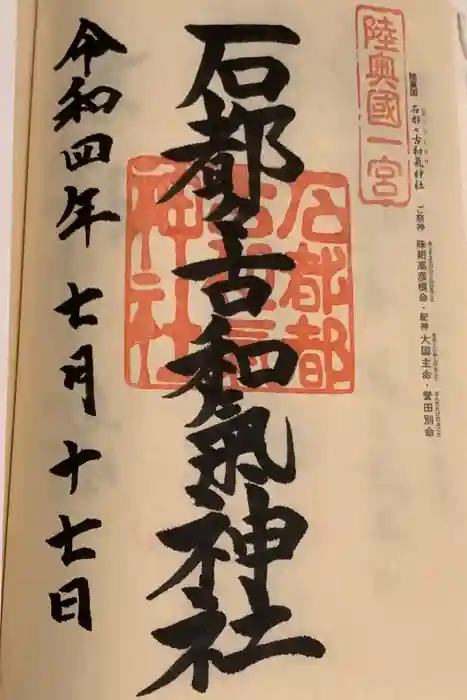 陸奥國一宮
陸奥国 石都々古和氣神社 ご祭神 味耜高彦根命・配神 大国主命・誉田別命
石都々古和氣神社
石都都古和氣神社
令和四年 七月 十七日